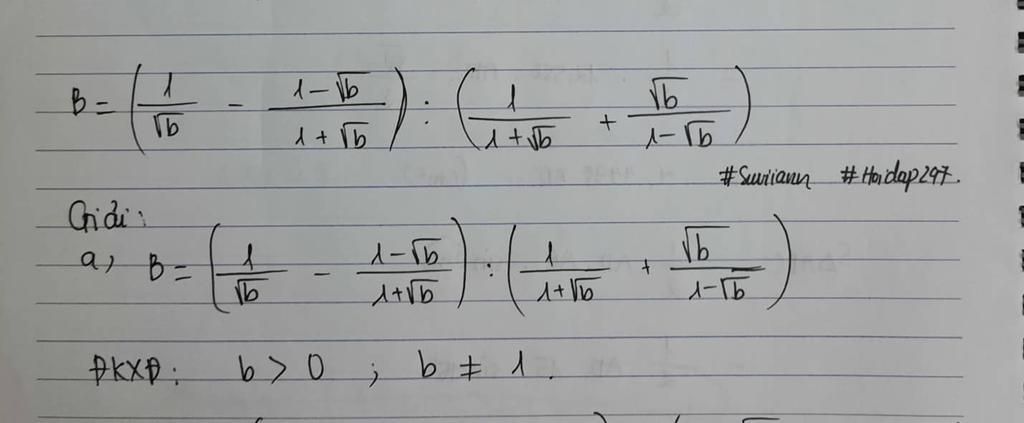 B = (1/√b - (1-√b)/(1+√b)) : (1/(1+√b) + √b/(1-√b))
#Suviann #Hoidap297.
Giải:
a, B = (1/√b - (1-√b)/(1+√b)) : (1/(1+√b) + √b/(1-√b))
ĐKXĐ: b > 0 ; b ≠ 1.